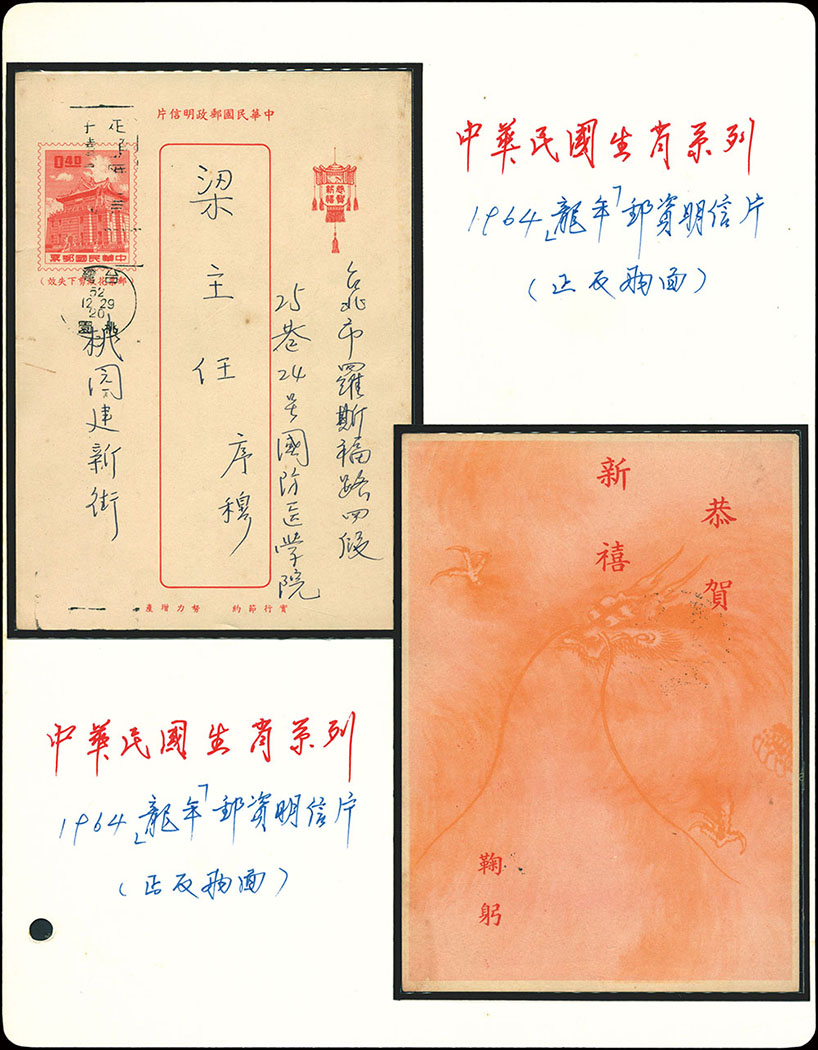 中華民國生肖系列
1964「龍年」郵資明信片
(正反兩面)
片信明政郵國民華中
0.40
票郵國民華中
恭賀
新禧
台北市羅斯福路四段
25巷24号國防医学院
梁主任
序穆
桃園建新街
52
12.29
20
產增力努 約節行實
恭賀
新禧
鞠躬
中華民國生肖系列
1964「龍年」郵資明信片
(正反兩面)